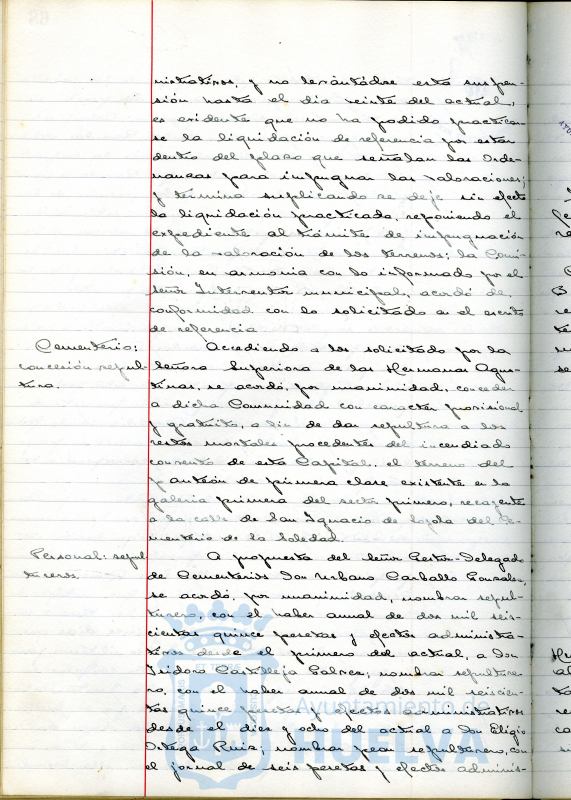 nistrativos, y no levantádose esta suspen-
sión hasta el dia veinte del actual,
es evidente que no ha podido practicar-
se la liquidación de referencia por estar
dentro del plazo que señalan las Orde-
nanzas para impugnar las valoraciones;
y termina suplicando se deje sin efecto
la liquidación practicada, reponiendo el
expediente al trámite de impugnación
de la valoración de los terrenos; la Comi-
sión, en armonia con lo informado por el
señor Interventor municipal, acordó de
conformidad con lo solicitado en el escrito
de referencia.
Cementerio:
concesión sepul-
tura.
Accediendo a los solicitado por la
Señora Superiora de las Hermanas Agus-
tinas, se acordó, por unanimidad, conceder
a dicha Comunidad con caracter provisional
y gratuito, a fin de dar sepultura a los
restos mortales procedentes del incendiado
convento de esta Capital, el terreno del
panteón de primera clase existente en la
galeria primera del sector primero, recayente
a la calle de San Ignacio de Loyola del Ce-
menterio de la Soledad.
Personal: sepul-
tureros.
A propuesta del Señor Gestor-Delegado
de Cementerios Don Urbano Carballo Gonzalez,
se acordó, por unanimidad, nombrar sepul-
turero, con el haber anual de dos mil seis-
cientas quince pesetas y efectos administra-
tivos desde el primero del actual, a Don
Isidoro Castilleja; nombrar sepulture-
ro, con el haber anual de dos mil seiscien-
tas quince pesetas y efectos administrativos
desde el dies y ocho del actual a Don Eligio
Ortega Ruiz; nombrar peon sepulturero, con
el jornal de seis pesetas y efectos adminis-
Ayuntamiento de
HUELVA